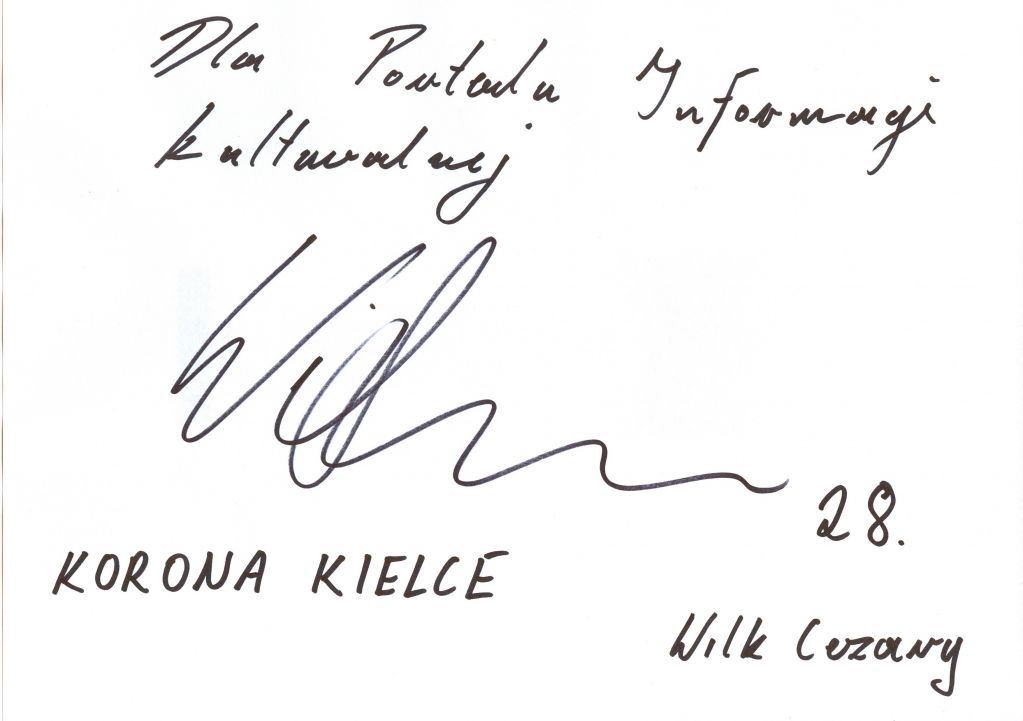 Dla Portalu Informacji
kulturalnej
Wilk
28.
KORONA KIELCE
Wilk Cezary